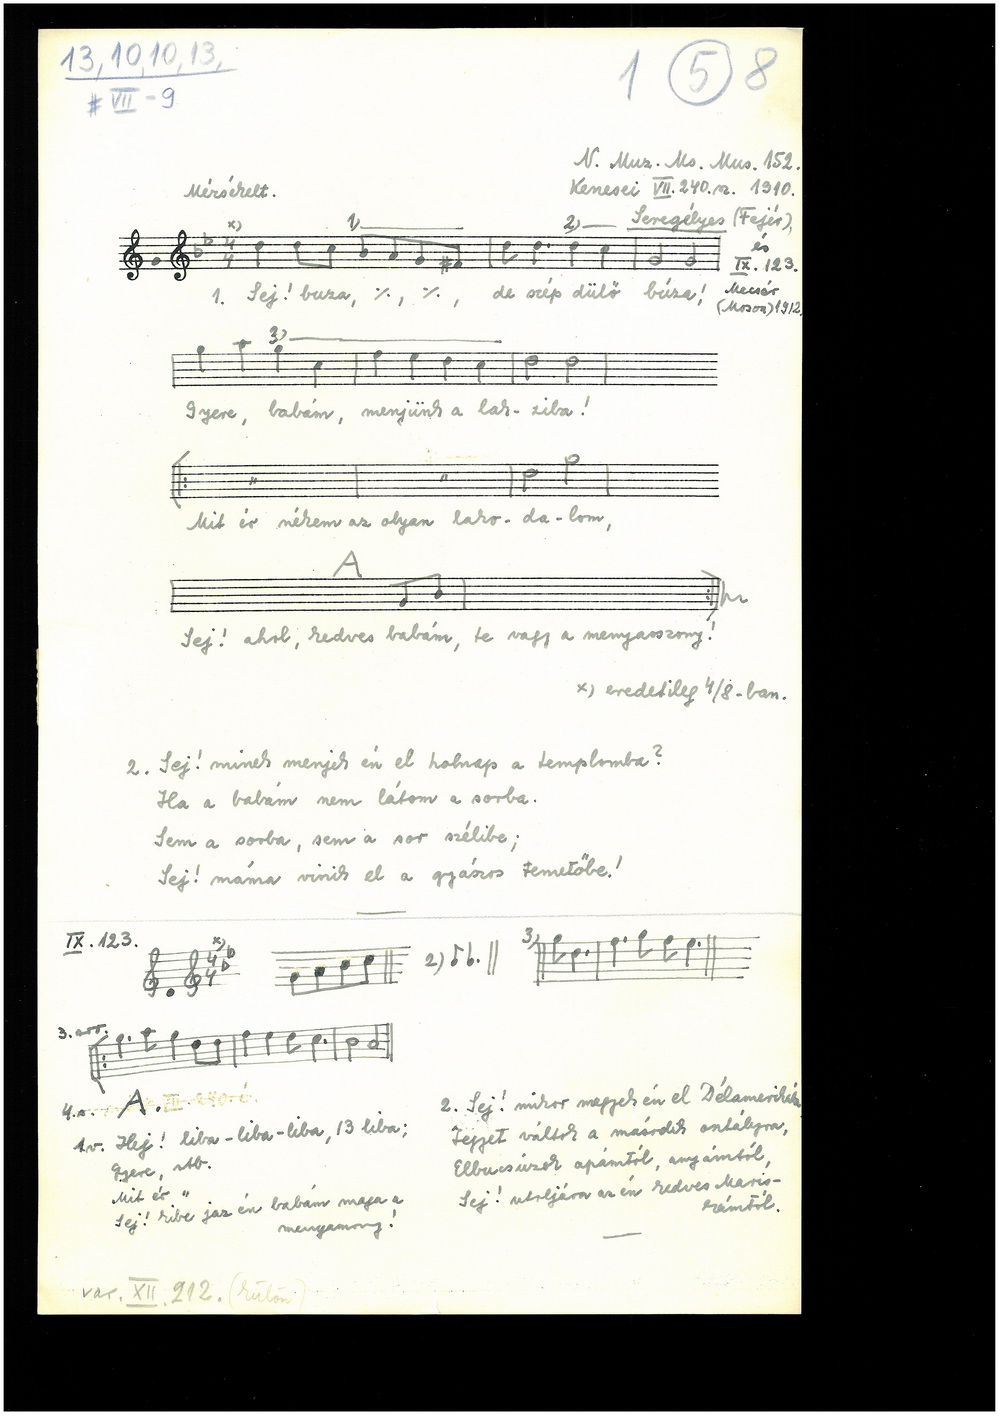 13, 10, 10, 13,
# VII - 9
1 5 8
N. Muz. Ms. Mus. 152.
Kenesei VII. 240. sz. 1910.
Mérsékelt.
Seregélyes (Fejér),
és
IX. 123.
Mecsér
(Moson) 1912.
x)
1)
2)
4/4
1. Sej! buza, ٪, ٪, de szép dülő búza!
3)
Gyere, babám, menjünk a lak- ziba!
" "
Mit ér nékem az olyan lako- da - lom,
A
Sej! ahol, kedves babám, te vagy a menyasszony!
x) eredetileg 4/8-ban.
2. Sej! minek menjek én el holnap a templomba?
Ha a babám nem látom a sorba.
Sem a sorba, sem a sor szélibe;
Sej! máma viszik el a gyászos temetőbe!
IX. 123.
x)
4/4
2)
3)
3. sor.
4. s. A.
1.v. Hej! liba - liba - liba, 13 liba;
Gyere, stb.
Mit ér "
Sej! kibe jaz én babám maga a
menyasszony!
2. Sej! mikor megyek én el Délamerikába
Jegyet váltok a második osztályra,
Elbucsúzok apámtól, anyámtól,
Sej! utoljára az én kedves Maris-
kámtól.
var. XII. 212. (külön)